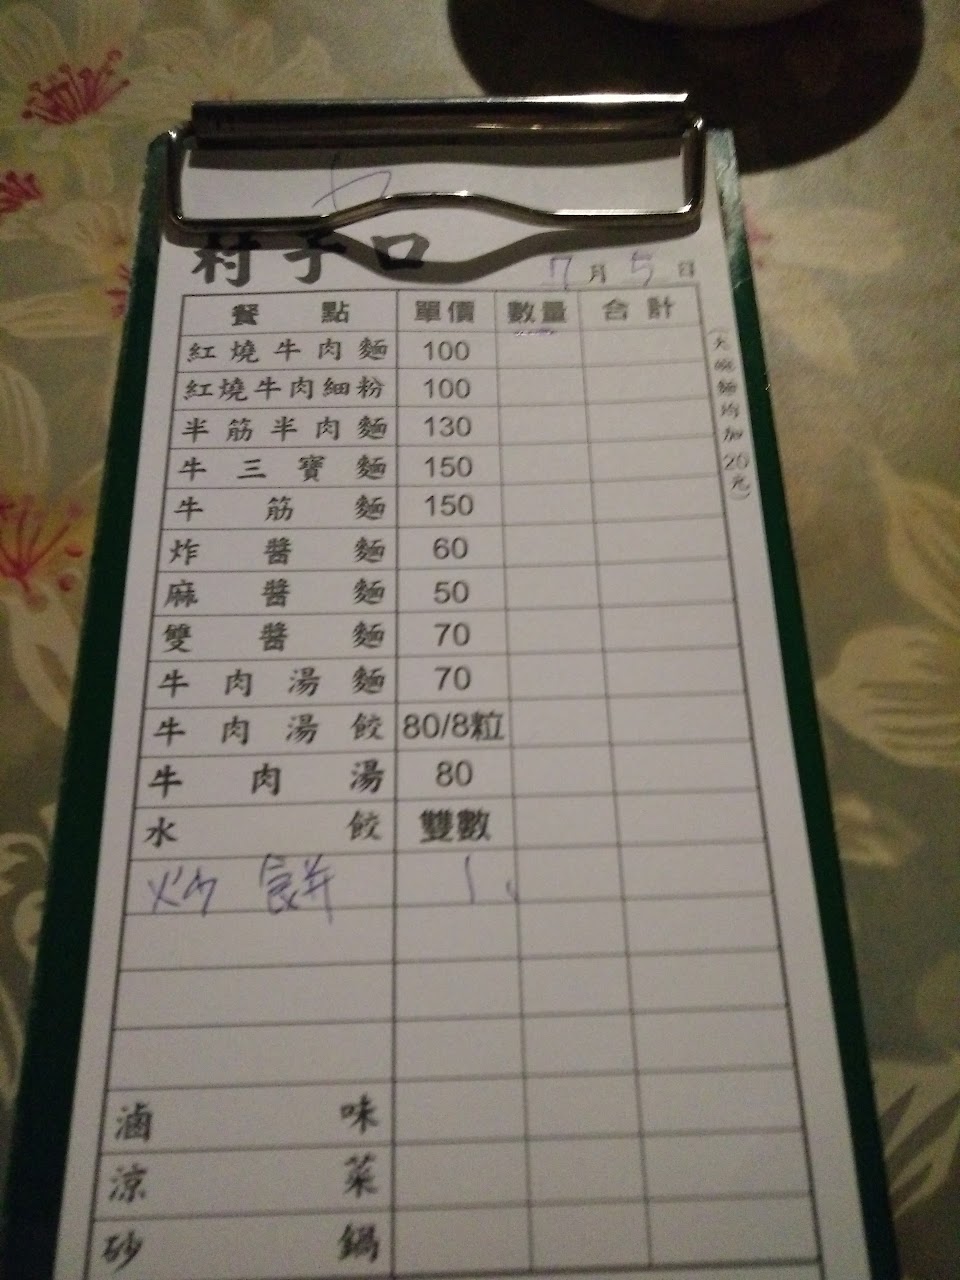 村子口
7月5日
餐點 單價 數量 合計
紅燒牛肉麵 100
紅燒牛肉細粉 100
半筋半肉麵 130
牛三寶麵 150
牛筋麵 150
炸醬麵 60
麻醬麵 50
雙醬麵 70
牛肉湯麵 70
牛肉湯餃 80/8粒
牛肉湯 80
水餃 雙數
炒餅 1
滷味
涼菜
砂鍋
(大碗麵均加20元)